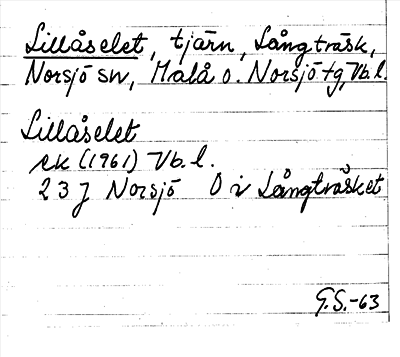 Lillåselet, tjärn, Långträsk,
Norsjö sn, Malå o. Norsjö tg, Vb. l.
Lillåselet
ek (1961) Vb. l.
23J Norsjö O i Långträsket
G.S.-63